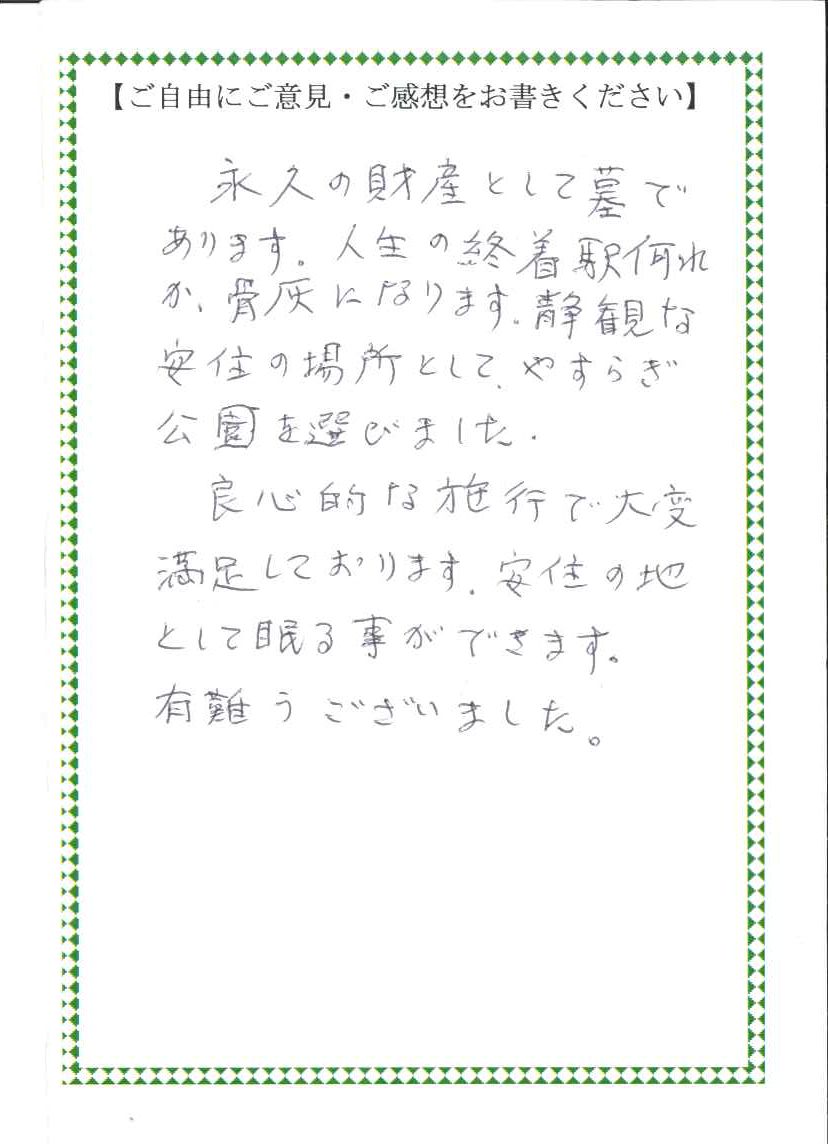 【ご自由にご意見・ご感想をお書きください】
永久の財産として墓で
あります。人生の終着駅何れ
か、骨灰になります。静観な
安住の場所として、やすらぎ
公園を選びました.
良心的な施行で大変
満足しております。安住の地
として眠る事ができます。
有難うございました。